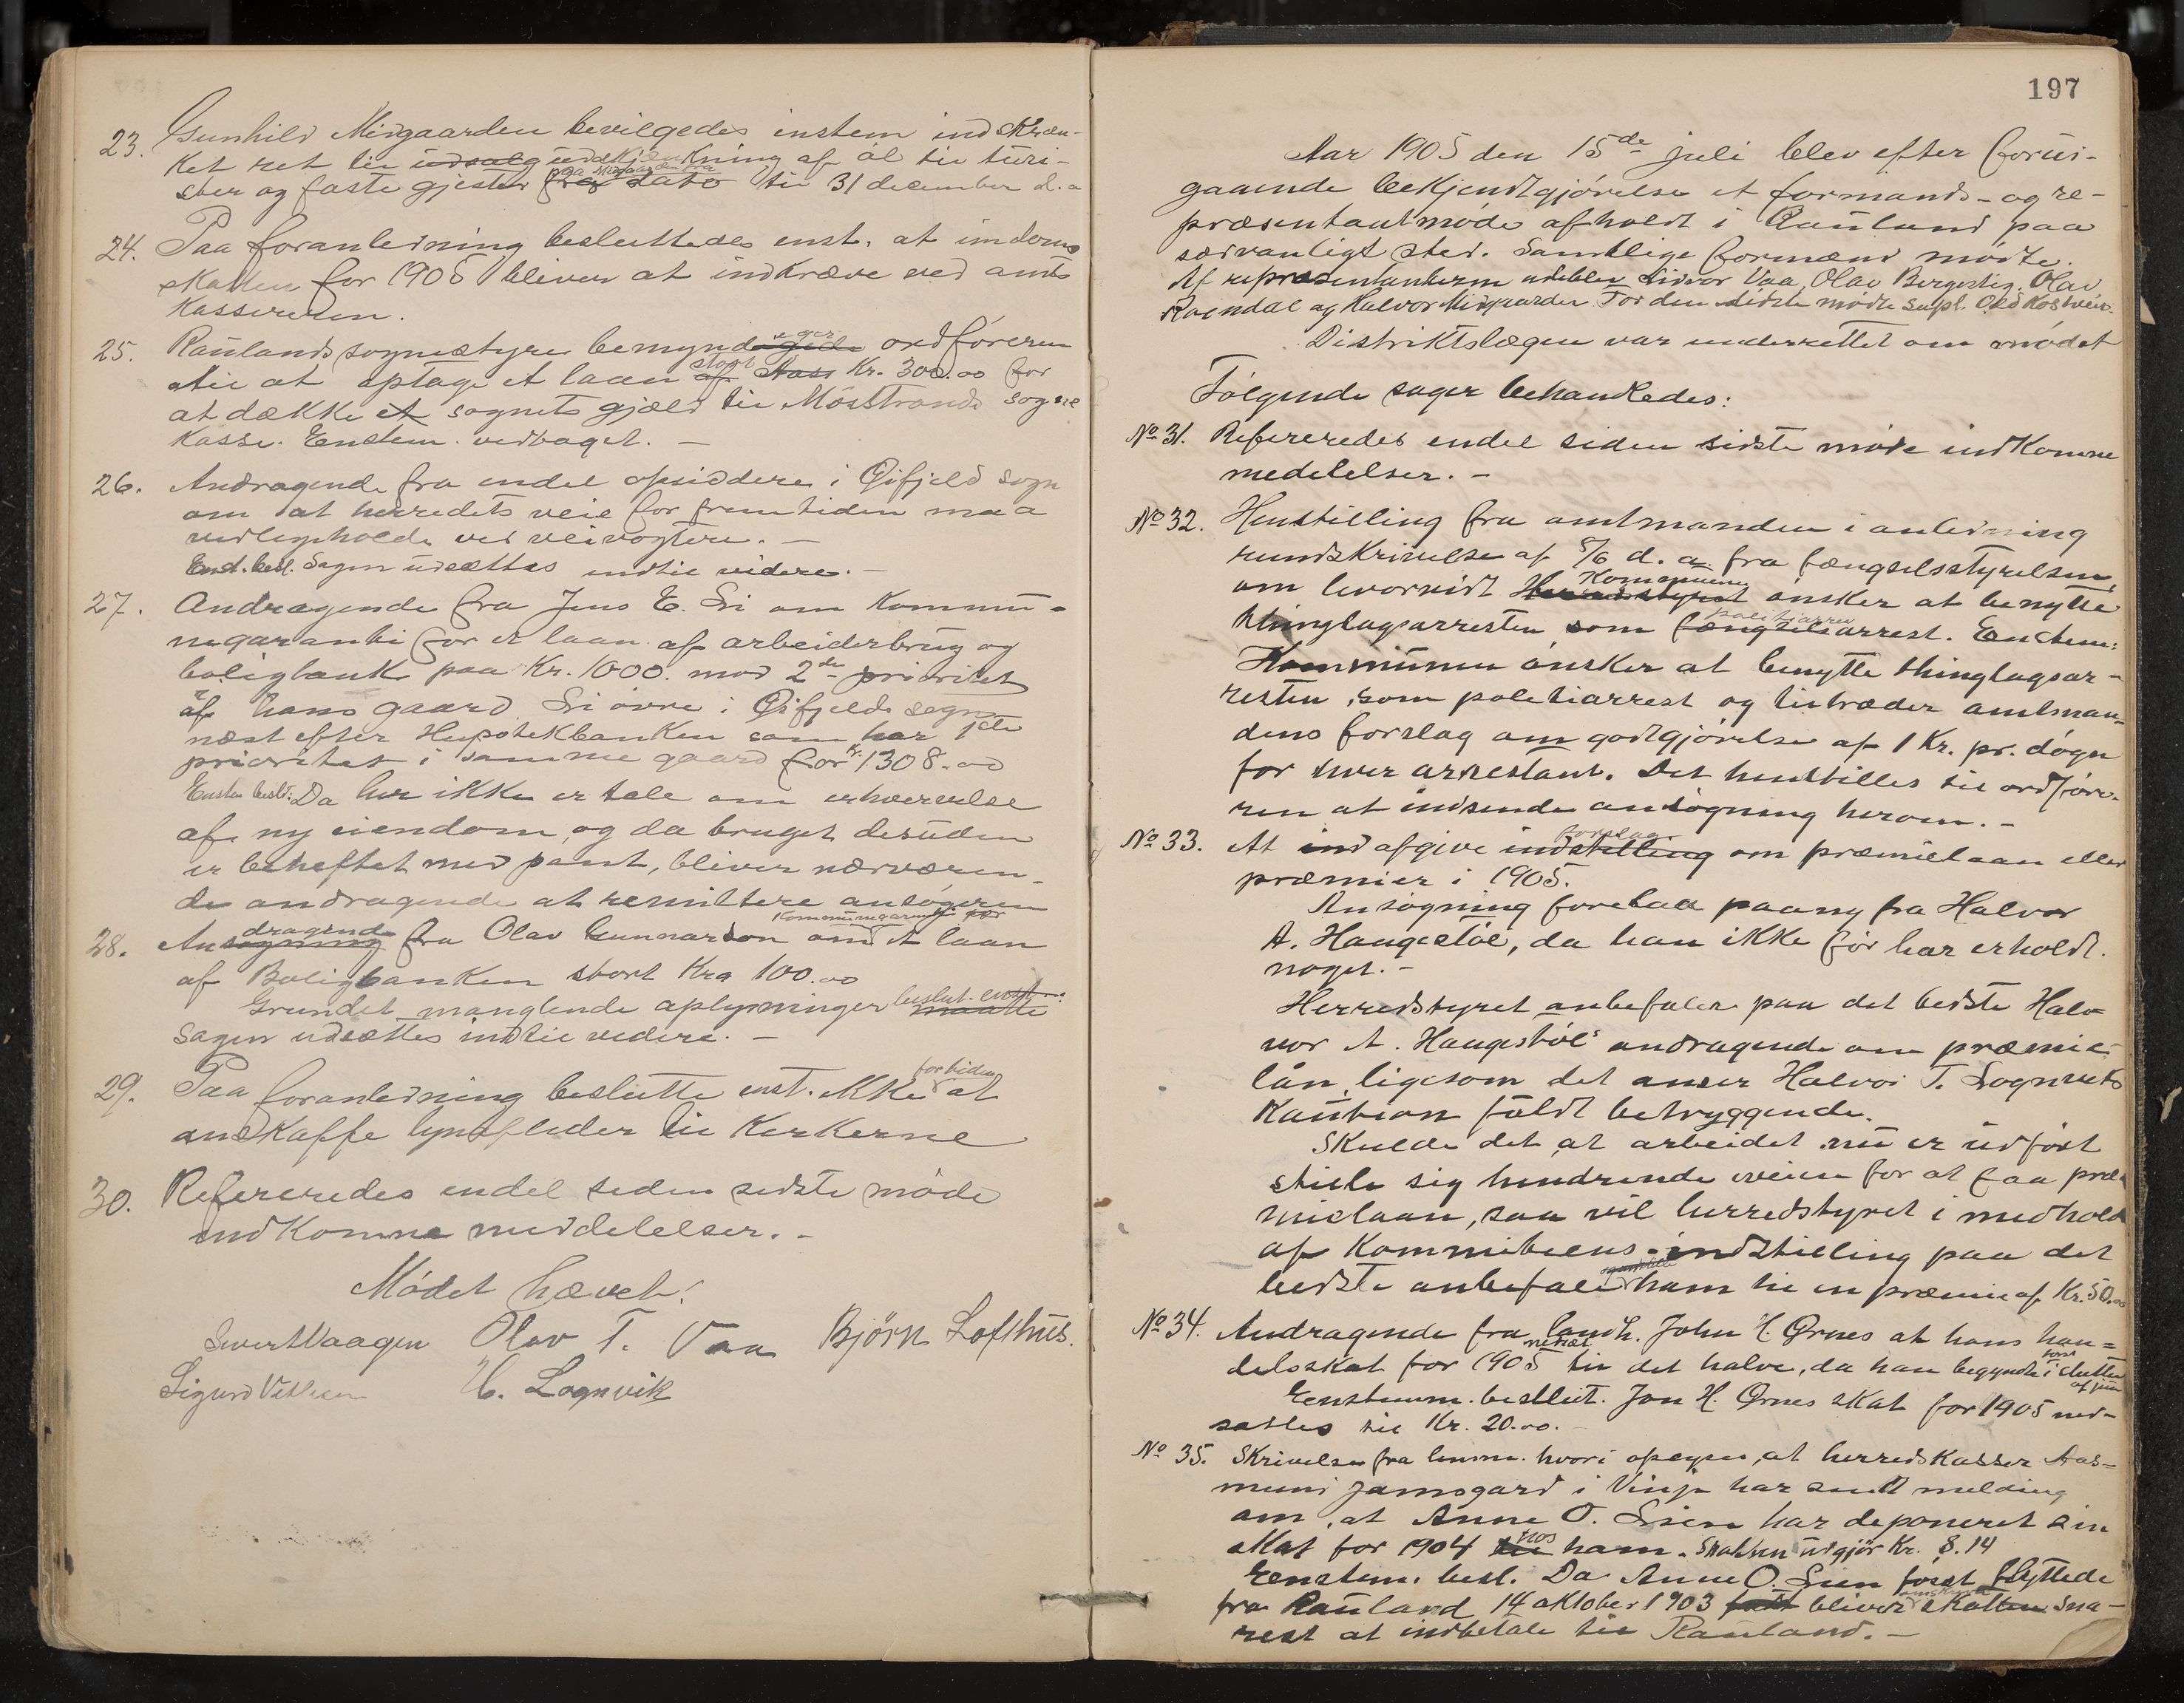 23. Gunhild Midgaarden bevilgedes enstem indskræn-
ket ret til udsalg udskjænkning af øl til turi-
ster og faste gjester paa Midgaarden fra dato til 31 december d.a
24. Paa foranledning besluttedes enst. at
skatten for 1905 bliver at indkræve ved amts
kassereren.
25. Raulands sognestyre bemyndiger ordføreren
til at optage et laan stort Kr. 300.00 for
at dække et sognets gjæld til Møsstrands sogne
kasse. Enstem. vedtaget. —
26. Andragende fra endel opsiddere i Øifjeld sogn
om at herredets veie for fremtiden maa
vedligeholdes ved veivogtere. —
Enst. besl. Sagen udsættes indtil videre. —
27. Andragende fra Jens E. Li om kommu-
negaranti for et laan af arbeiderbrug og
boligbank paa Kr. 1000. mod 2de prioritet
af hans gaard Li øvre i Øifjelds sogn
næst efter Hypotekbanken som har 1ste
prioritet i samme gaard for Kr. 1308.00
Enstem besl: Da her ikke er tale om erhvervelse
af ny eiendom og da bruget desuden
er beheftet med pant, bliver nærværen-
de andragende at remittere ansøgeren
28. Andragende fra Olav Gunnarson om kommunegaranti for et laan
af Boligbanken stort Kra 100.00
Grundet manglende oplysninger beslut. enst:
sagen udsættes indtil videre. —
29. Paa foranledning beslutte enst. ikke fortiden at
anskaffe lynafleder til Kirkerne
30. Refereredes endel siden sidste møde
indkomne meddelelser. -
Mødet hævet!
Sivert Vaagen Olav T. Vaa Bjørn Lofthus.
Sigurd H. Lognvik
197
Aar 1905 den 15de juli blev efter foruд-
gaaende bekjendtgjørelse et formands- og re-
præsentantmøde afholdt i Rauland paa
sædvanligt sted. Samtlige formænd mødte.
Af repræsentanterne udeblev Sidvor Vaa, Olav Bergestig, Olav
Roendal og Halvor Midgaarden For den sidste mødte supl.
Distriktslægen var underrettet om mødet
Følgende sager behandledes:
No 31. Refereredes endel siden sidste møde indkomne
medelelser. —
No 32. Henstilling fra amtmanden i anledning
rundskrivelse af 5/6 d.a. fra fængselsstyrelsen,
om hvorvidt Herredsstyret Kommunen ønsker at benytte
thinglagsarresten som fængselsarrest politiarrest. Enstem:
Kommunen ønsker at benytte thinglagsar-
resten som politiarrest og tiltræder amtman-
dens forslag om godtgjørelse af 1 Kr. pr. døgn
for hver arrestant. Det henstilles til ordføre-
ren at indsende ansøgning herom. —
No 33. At ind afgive indstilling forslag om præmielaan eller
præmier i 1905.
Ansøgning forelaa paany fra Halvor
A. Haugestøl, da han ikke før har erholdt
noget. —
Herredstyret anbefaler paa det bedste Hal-
vor A. Haugestøl's andragende om præmie-
lån, ligesom det anser Halvor T. Lognviks
kaution fuldt betryggende.
Skulde det, at arbeidet nu er udført
stille sig hindrende iveien for at faa præ-
mielaan, saa vil herredstyret i medhold
af Kommitteens indstilling paa det
bedste anbefale ham til en præmie af Kr. 50.00
No 34. Andragende fra landh. John H. Ørnes at hans han-
delsskat for 1905 nedsæt til det halve, da han begyndte først i slutten
af juni
Enstemm. beslut. Jon H. Ørnes skat for 1905 ned-
sattes til Kr. 20.00. —
No 35. Skrivelse fra lensm. hvori oplyses, at herredskasser Aas-
mund Jamsgard i Vinje har sendt melding
om, at Anne O. Lien har deponeret sin
skat for 1904 til hos ham. Skatten udgjør Kr. 8.14
Enstem. besl. Da Anne O. Lien først flyttede
fra Rauland 14 oktober 1903 bliver skatten sna-
rest at indbetale til Rauland. —